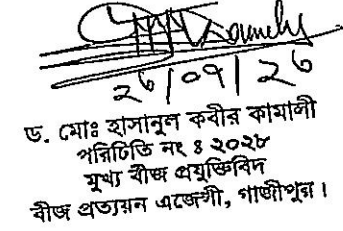 ২৬/০৭/২৬
ড. মোঃ হাসানুল কবীর কামালী
পরিচিতি নং ঃ ২০২৮
মুখ্য বীজ প্রযুক্তিবিদ
বীজ প্রত্যয়ন এজেন্সী, গাজীপুর।